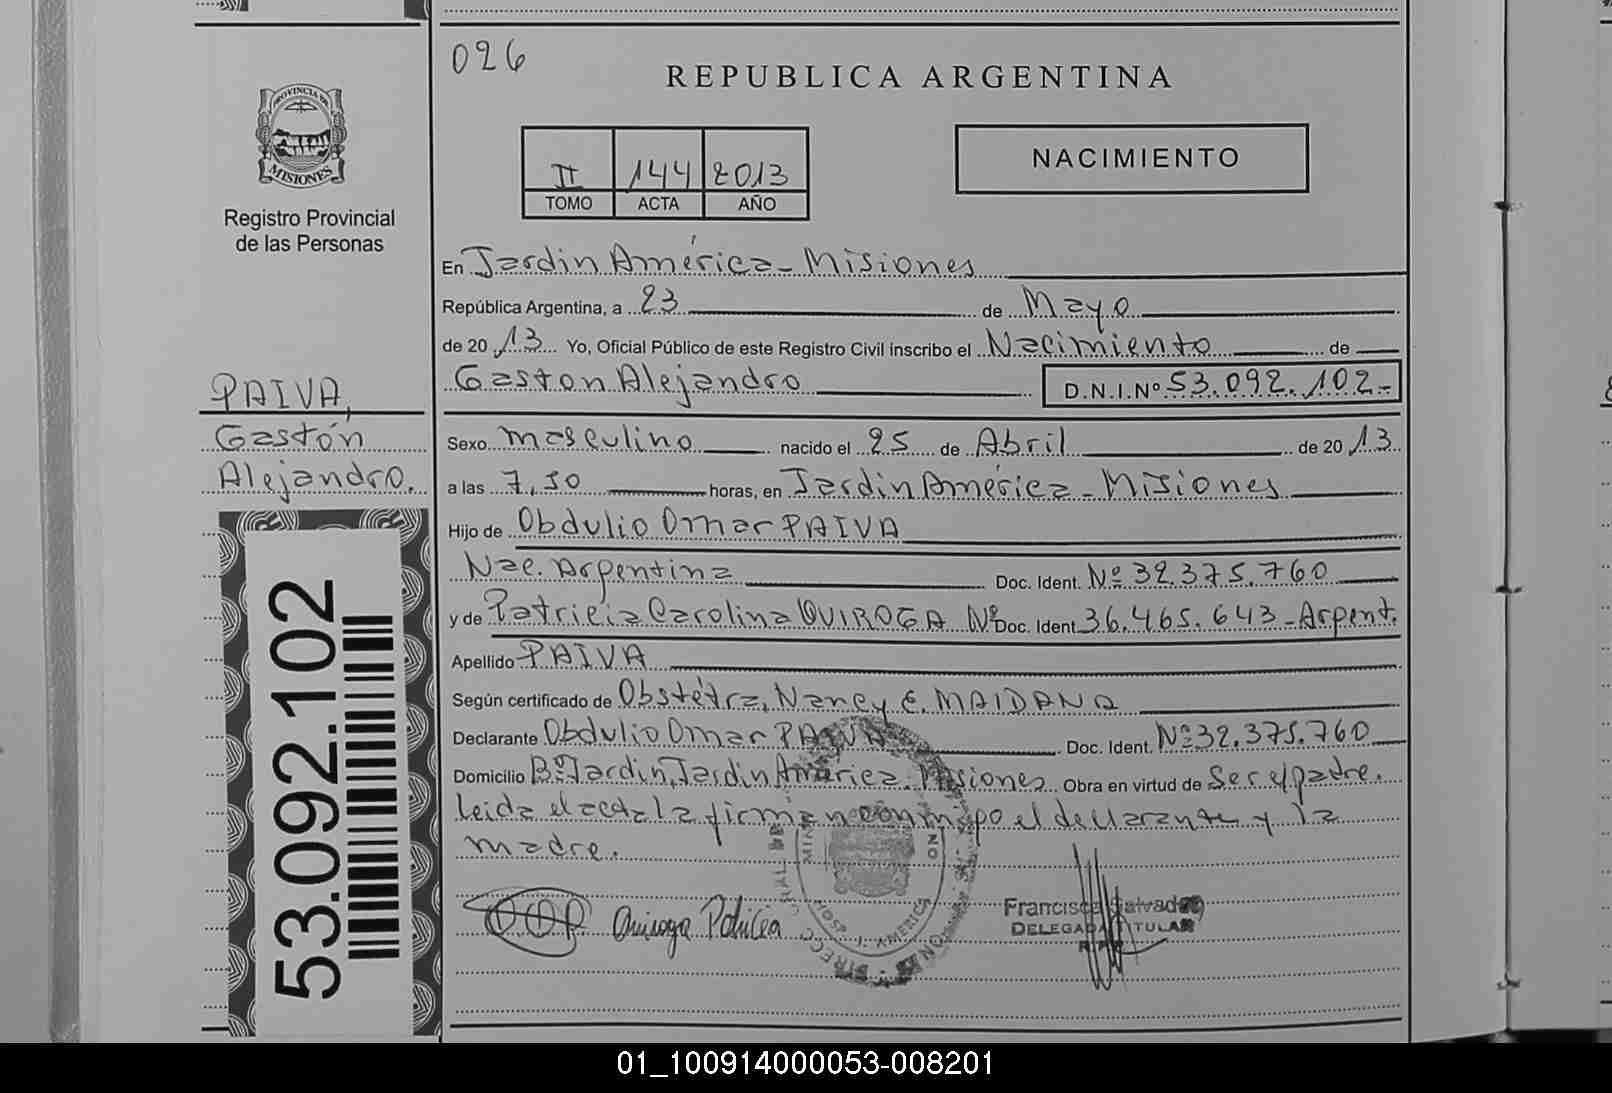 026
REPUBLICA ARGENTINA
PROVINCIA DE
MISIONES
Registro Provincial
de las Personas
NACIMIENTO
II 144 2013
TOMO ACTA AÑO
En Jardin América - Misiones
República Argentina, a 23 de Mayo
de 2013 Yo, Oficial Público de este Registro Civil inscribo el Nacimiento de
Gaston Alejandro D.N.I.Nº 53.092.102-
PAIVA,
Gastón
Alejandro.
Sexo masculino nacido el 25 de Abril de 2013
a las 7,30 horas, en Jardin América - Misiones
Hijo de Obdulio Omar PAIVA
Nac. Argentina Doc. Ident. Nº 32.375.760
y de Patricia Carolina QUIROGA Nº Doc. Ident. 36.465.643 - Argent.
Apellido PAIVA
Según certificado de Obstétra, Nancy E. MAIDANA
Declarante Obdulio Omar PAIVA Doc. Ident. Nº 32.375.760
Domicilio Bº Jardin, Jardin América. Misiones Obra en virtud de Ser el padre.
Leida el acta la firman conmigo el declarante y la
madre.
53.092.102
OOP Quiroga Patricia
Francisca Salvador
DELEGADA TITULAR
R.P.P.
01_100914000053-008201